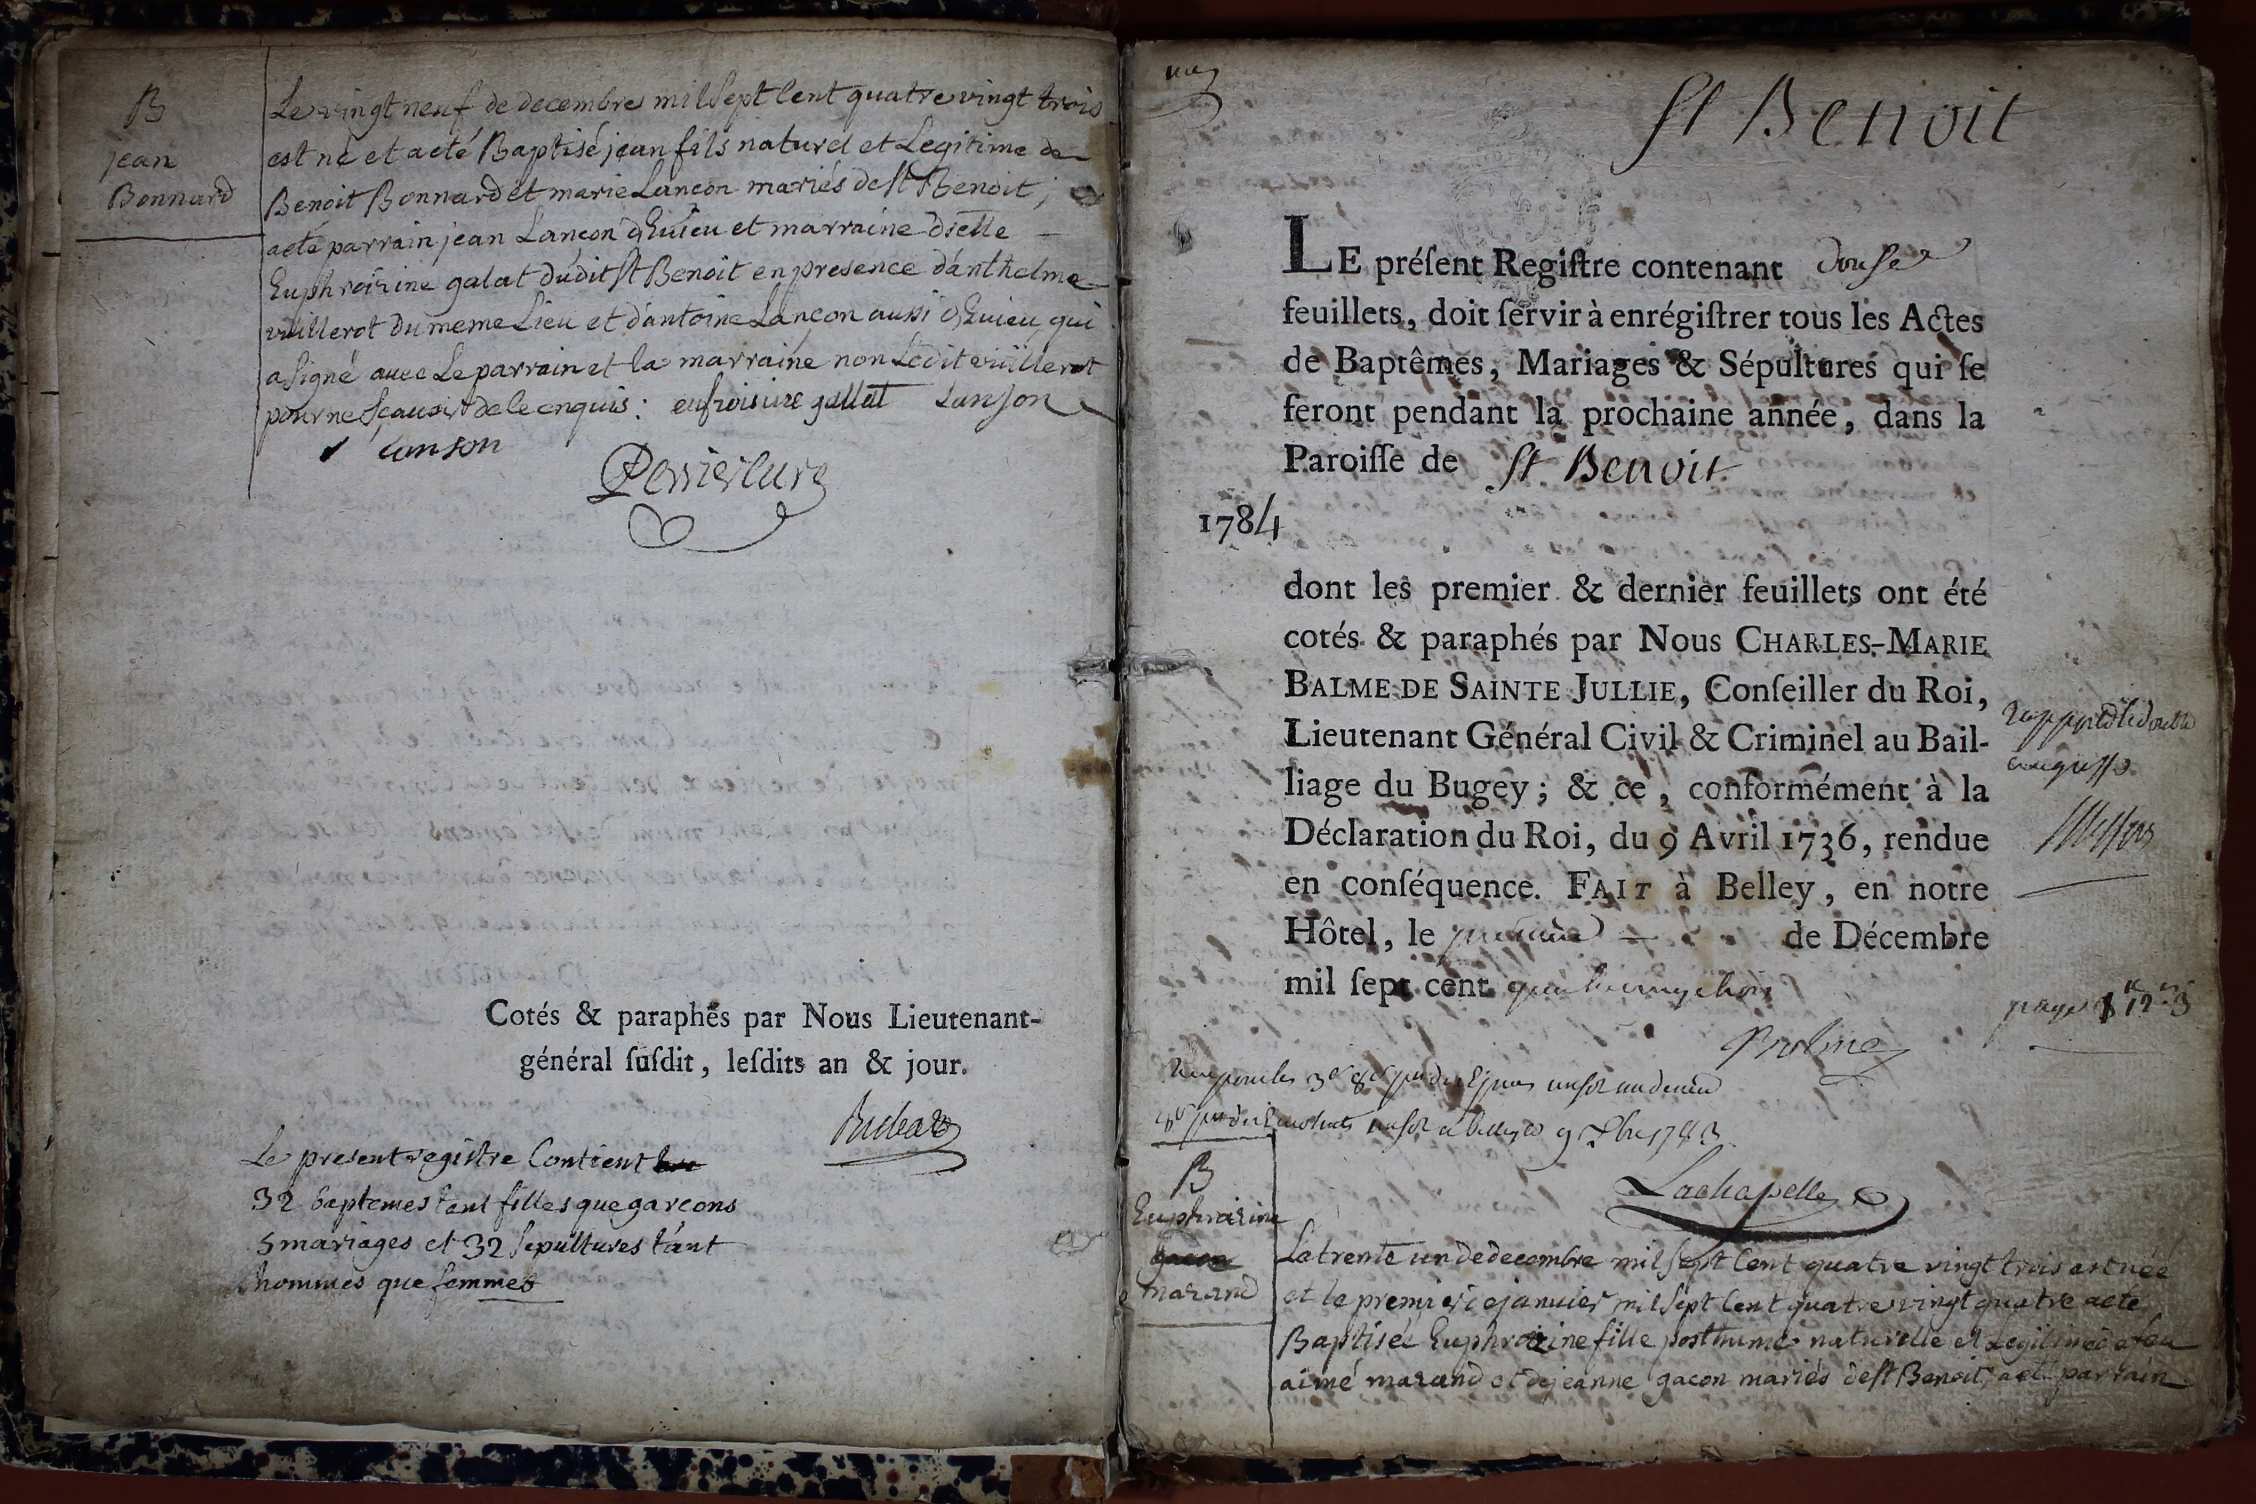 B
jean
Bonnard
Le vingt neuf de decembre mil sept Cent quatre vingt trois
est né et a eté Baptisé jean fils naturel et Legitime de
Benoit Bonnard et marie Lancon mariés de st Benoit ;
a eté parrain jean Lancon d'Evieu et marraine dselle
Euphroizine galat dudit st Benoit en presence d'anthelme
vuillerot du meme Lieu et d'antoine Lancon aussi d'Evieu qui
a signé avec Le parrain et la marraine non Ledit vuillerot
pour ne sçavoir de ce enquis : eufroisine gallat Lanson
Lanson
Perrier Curé
Cotés & paraphés par Nous Lieutenant-
général ſuſdit, leſdits an & jour.
Le present registre Contient
32 baptemes tant filles que garcons
5 mariages et 32 sepultures tant
hommes que femmes
St Benoit
LE préſent Regiſtre contenant douse
feuillets, doit ſervir à enrégiſtrer tous les Actes
de Baptêmes, Mariages & Sépultures qui ſe
feront pendant la prochaine année, dans la
Paroiſſe de St Benoit
1784
dont les premier & dernier feuillets ont été
cotés & paraphés par Nous CHARLES-MARIE
BALME DE SAINTE JULLIE, Conſeiller du Roi,
Lieutenant Général Civil & Criminel au Bail-
liage du Bugey ; & ce, conformément à la
Déclaration du Roi, du 9 Avril 1736, rendue
en conſéquence. FAIT à Belley, en notre
Hôtel, le premier de Décembre
mil ſept cent quatre vingt trois
Balme
9 Xbre 1783
Lachapelle
B
Euphroizine
gacon
marand
La trente un de decembre mil sept Cent quatre vingt trois est née
et le premier de janvier mil sept Cent quatre vingt quatre a eté
Baptisée Euphroizine fille posthume naturelle et Legitime de feu
aimé marand et de jeanne gacon mariés de st Benoit, a eté parrain